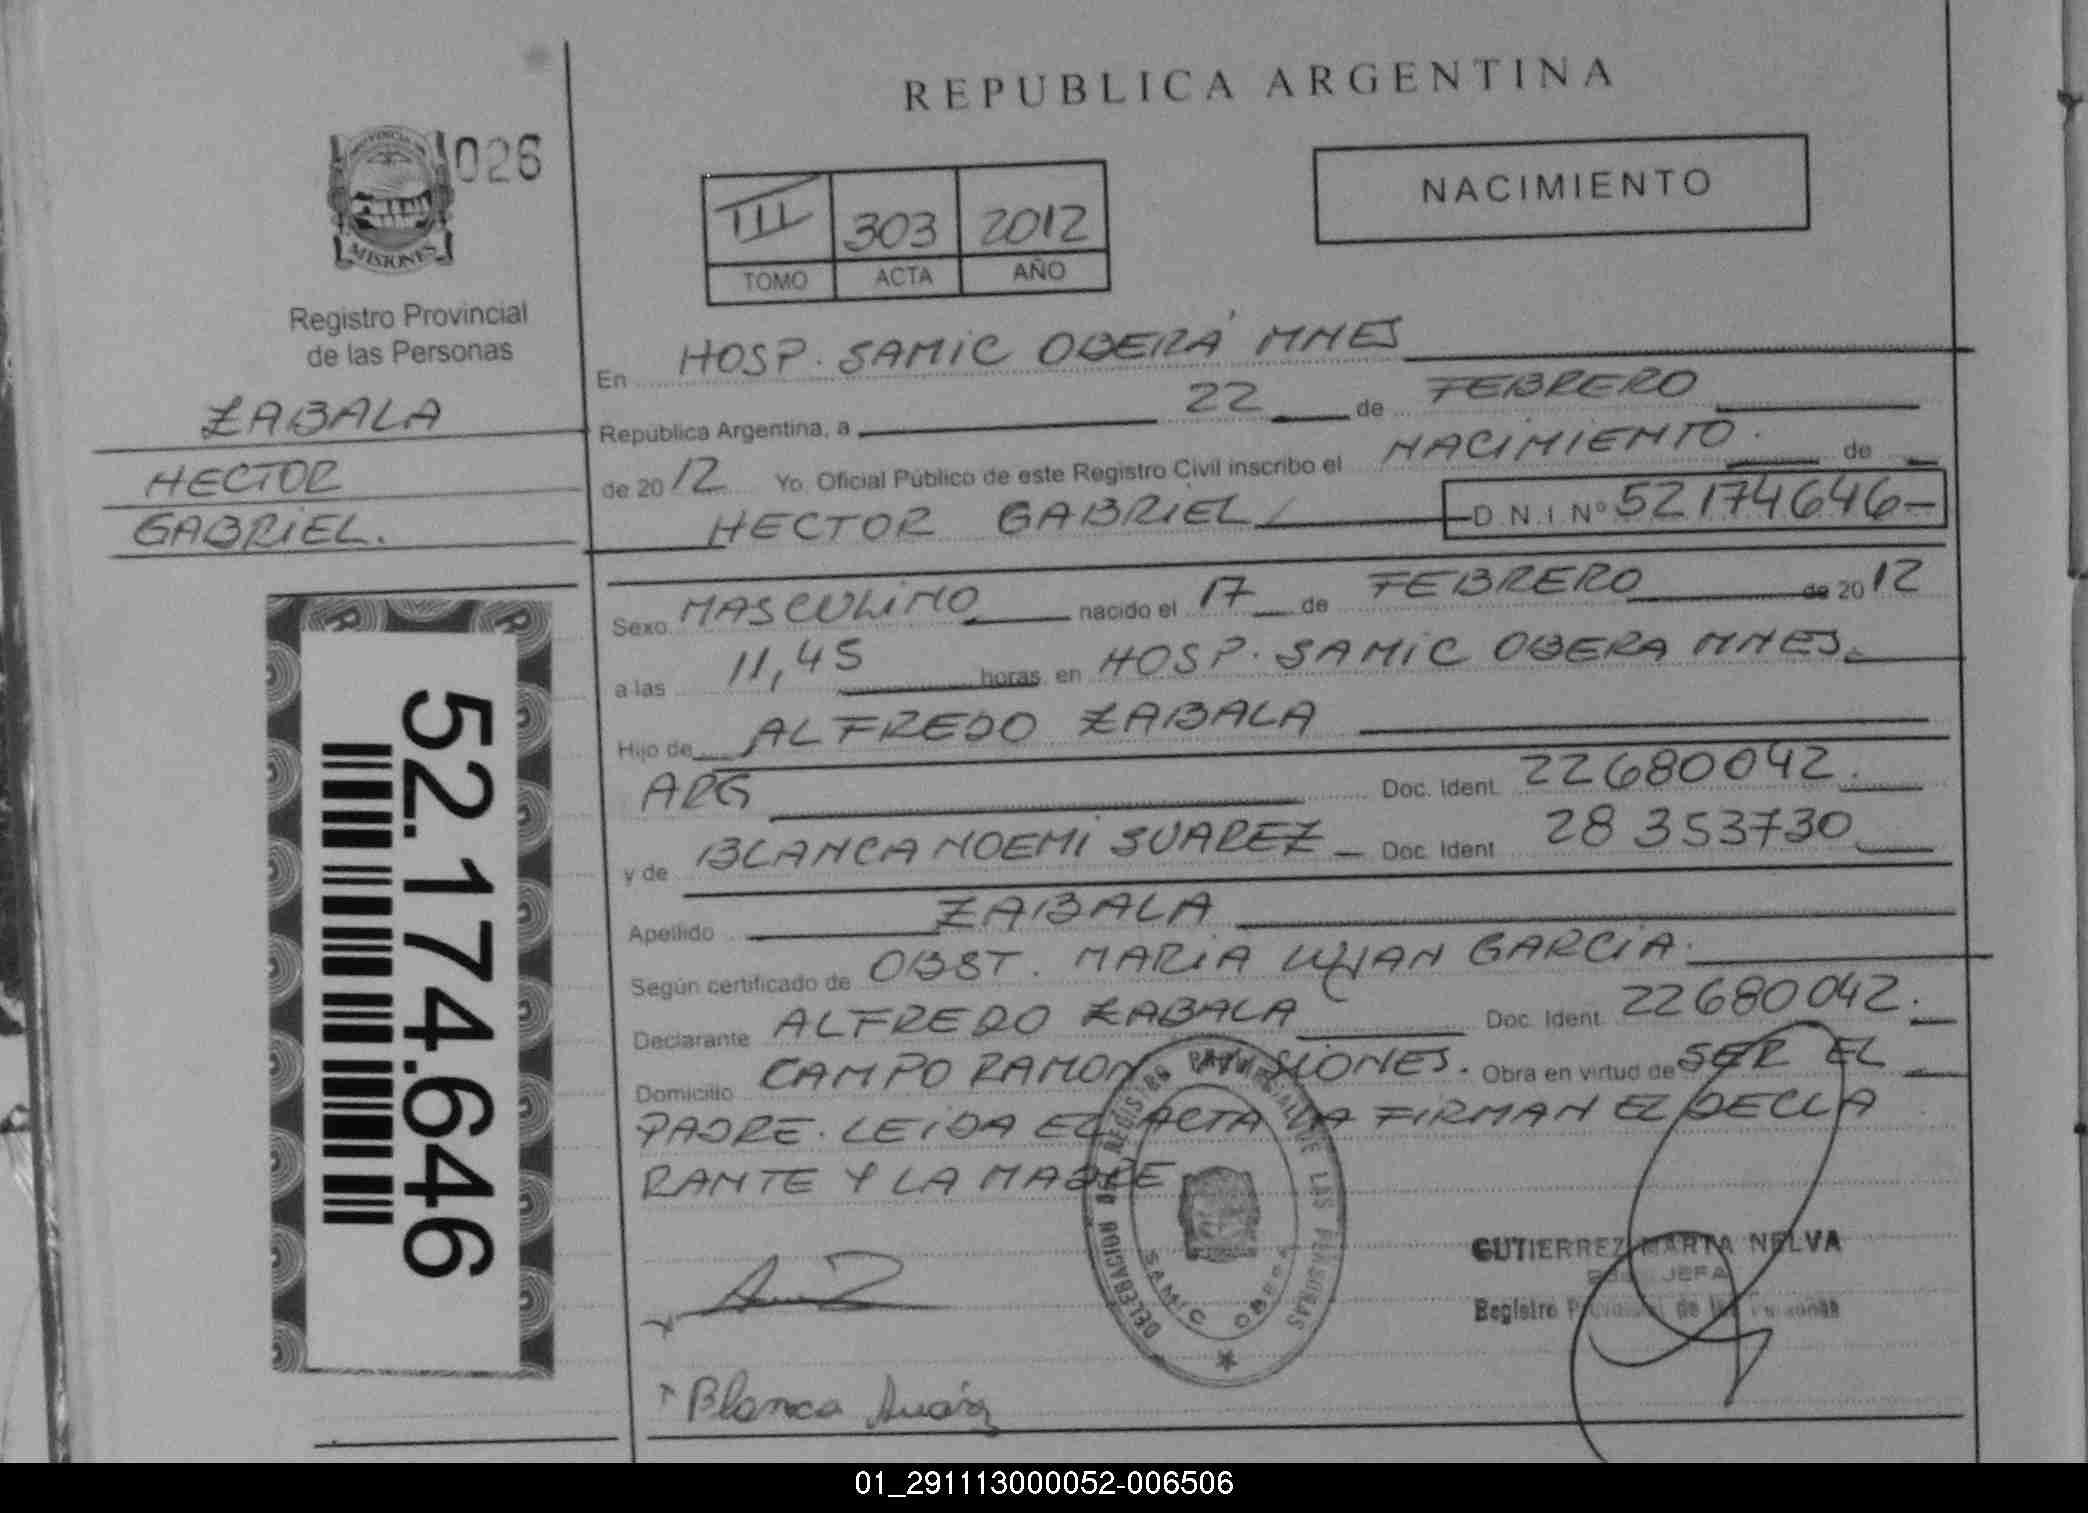 REPUBLICA ARGENTINA
PROVINCIA
MISIONES
026
Registro Provincial
de las Personas
ZABALA
HECTOR
GABRIEL.
52.174.646
III 303 2012
TOMO ACTA AÑO
NACIMIENTO
En HOSP. SAMIC OBERÁ MNES
República Argentina, a 22 de FEBRERO
de 2012 Yo, Oficial Público de este Registro Civil inscribo el NACIMIENTO. de
HECTOR GABRIEL D N I Nº 52174646-
Sexo MASCULINO nacido el 17 de FEBRERO de 2012
a las 11,45 horas en HOSP. SAMIC OBERA MNES.
Hijo de ALFREDO ZABALA
ARG Doc. Ident. 22680042.
y de BLANCA NOEMI SUAREZ Doc. Ident 28 353730
Apellido ZABALA
Según certificado de OBST. MARIA LUJAN GARCIA.
Declarante ALFREDO ZABALA Doc. Ident. 22680042.
Domicilio CAMPO RAMON MISIONES. Obra en virtud de SER EL
PADRE. LEIDA EL ACTA LA FIRMAN EL DECLA
RANTE Y LA MADRE
DELEGACION DEL REGISTRO PROVINCIAL DE LAS PERSONAS
SAMIC OBERA
GUTIERREZ MARTA NELVA
JEFA
Registro Provincial de las Personas
Blanca Suárez
01_291113000052-006506